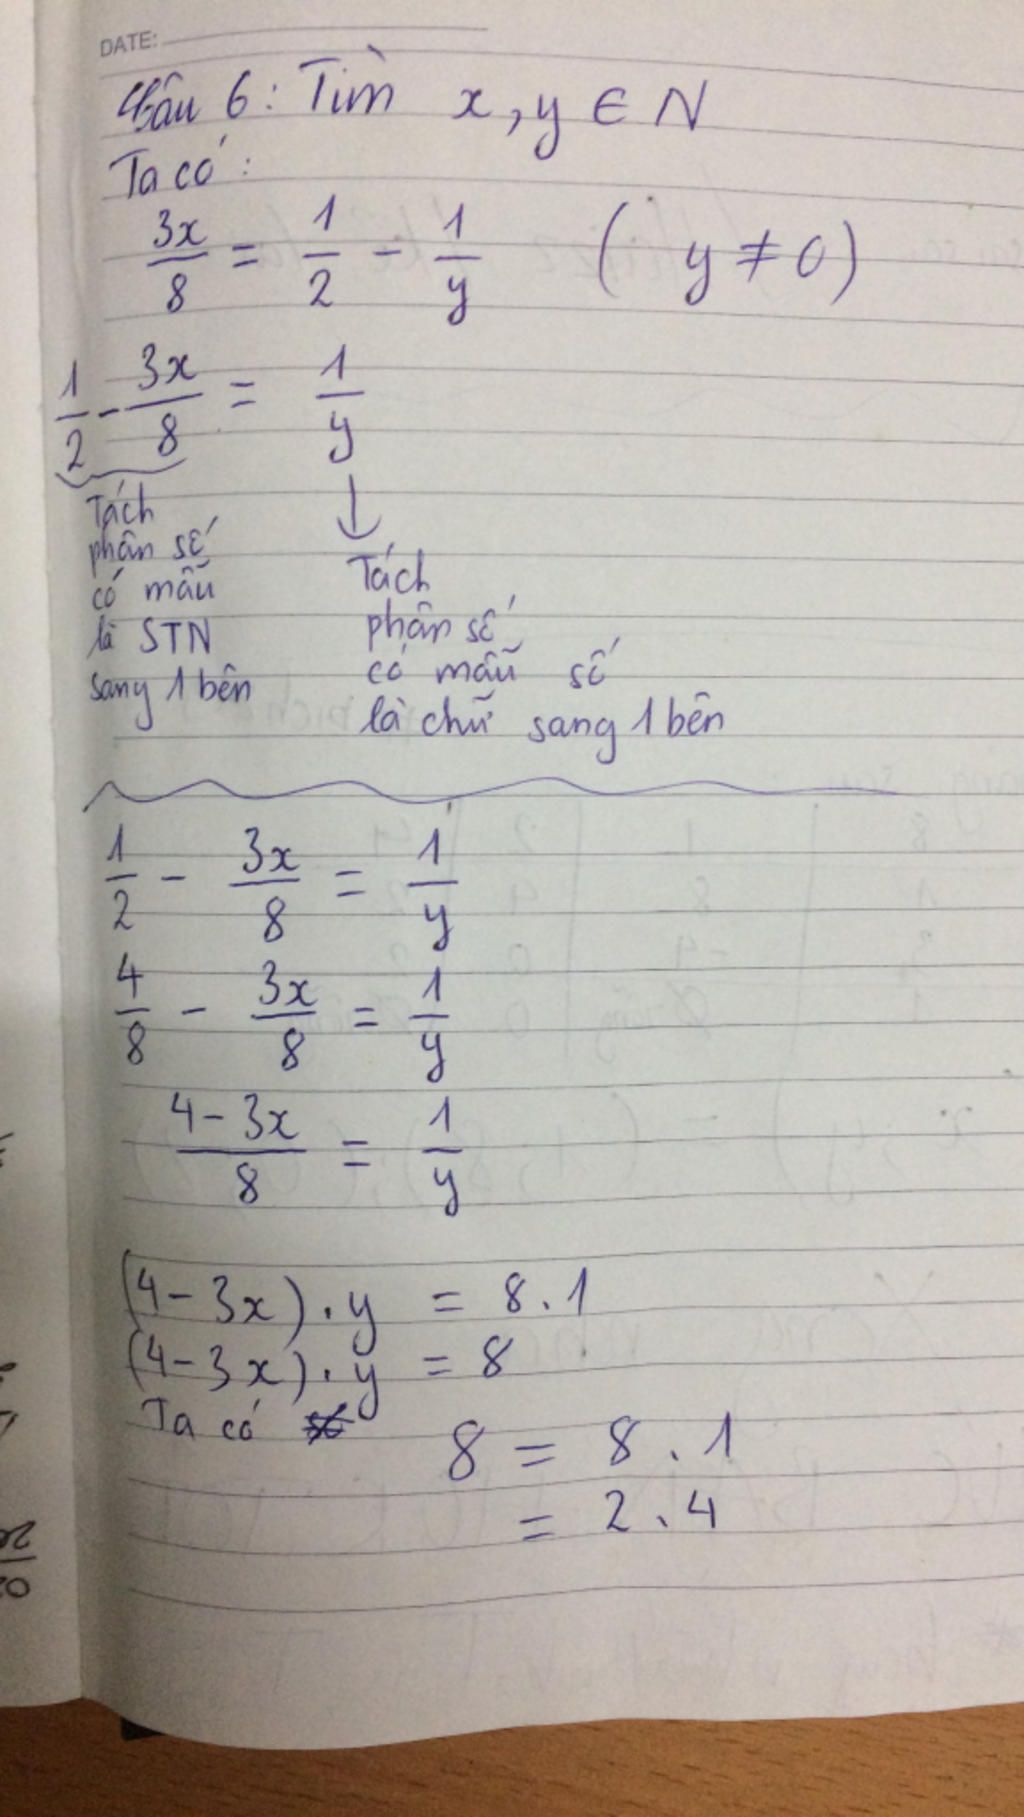 DATE:
Câu 6: Tìm x, y ∈ N
Ta có:
3x/8 = 1/2 - 1/y ( y ≠ 0)
1/2 - 3x/8 = 1/y
Tách
phân số
có mẫu
là STN
sang 1 bên
Tách
phân số
có mẫu số
là chữ sang 1 bên
1/2 - 3x/8 = 1/y
4/8 - 3x/8 = 1/y
4 - 3x/8 = 1/y
(4 - 3x) . y = 8 . 1
(4 - 3x) . y = 8
Ta có
8 = 8 . 1
= 2 . 4